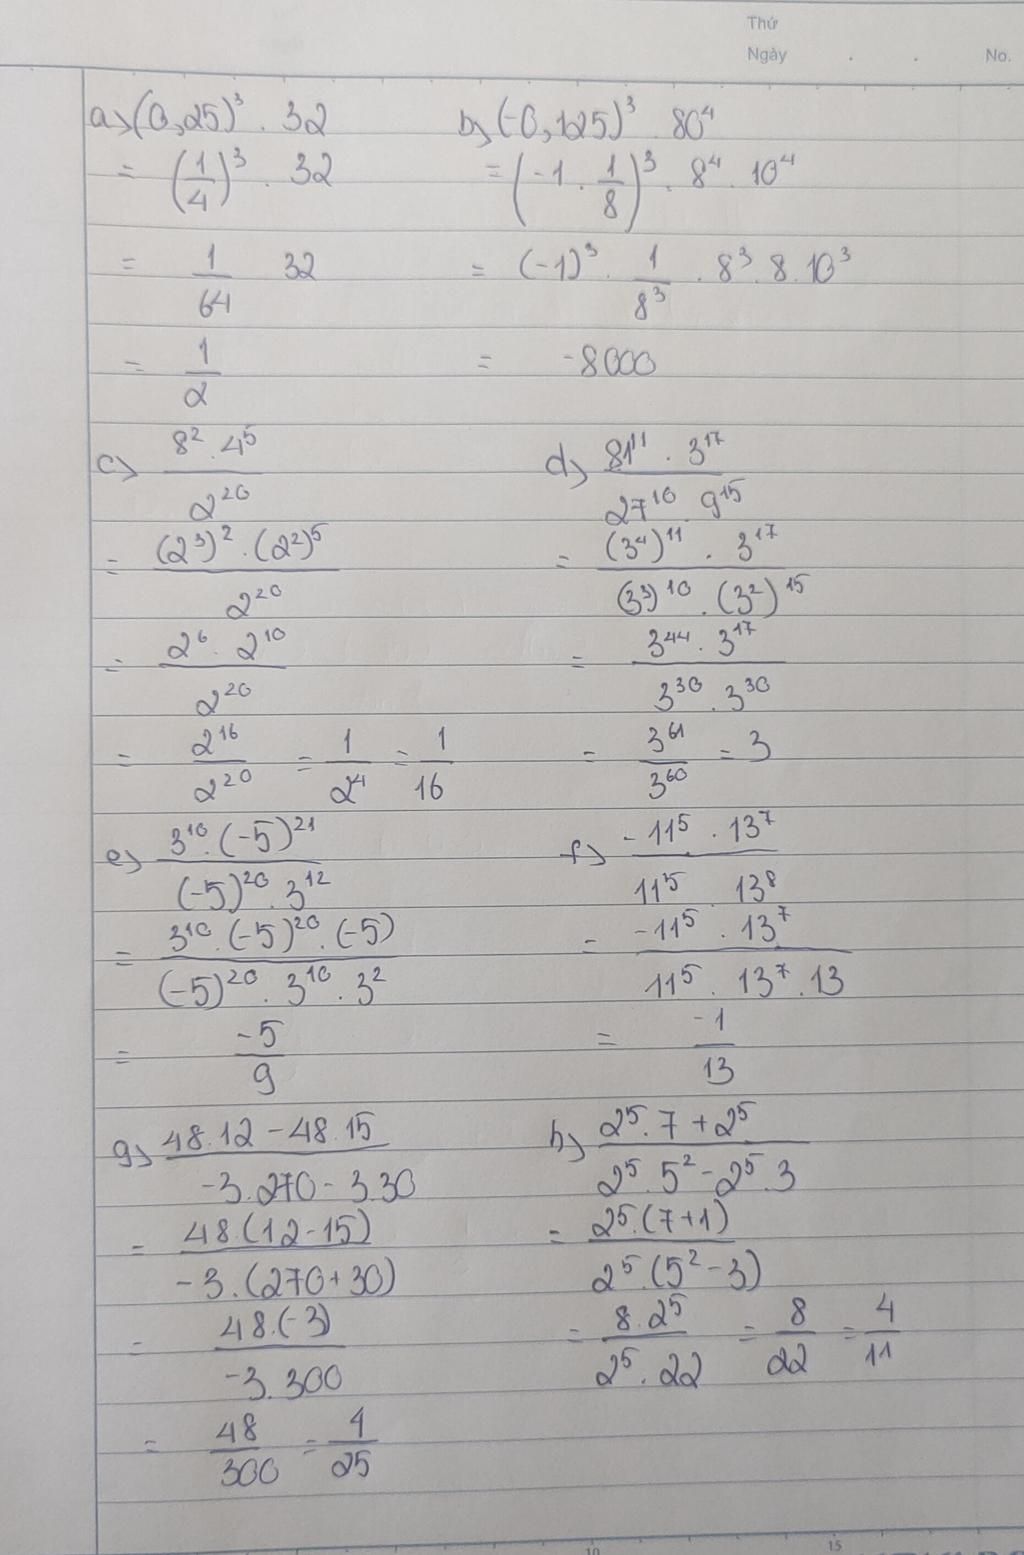 Thứ
Ngày . . No.
a) (0,25)³ . 32
= (1/4)³ . 32
= 1/64 32
= 1/2
b) (-0,125)³ . 80⁴
= (-1 . 1/8)³ . 8⁴ . 10⁴
= (-1)³ . 1/8³ . 8³ . 8 . 10³
= -8000
c) 8² . 4⁵ / 2²⁰
= (2³)² . (2²)⁵ / 2²⁰
= 2⁶ . 2¹⁰ / 2²⁰
= 2¹⁶ / 2²⁰ = 1/2⁴ = 1/16
d) 81¹¹ . 3¹⁷ / 27¹⁰ . 9¹⁵
= (3⁴)¹¹ . 3¹⁷ / (3³)¹⁰ . (3²)¹⁵
= 3⁴⁴ . 3¹⁷ / 3³⁰ . 3³⁰
= 3⁶¹ / 3⁶⁰ = 3
e) 3¹⁰ . (-5)²¹ / (-5)²⁰ . 3¹²
= 3¹⁰ . (-5)²⁰ . (-5) / (-5)²⁰ . 3¹⁰ . 3²
= -5/9
f) -11⁵ . 13⁷ / 11⁵ . 13⁸
= -11⁵ . 13⁷ / 11⁵ . 13⁷ . 13
= -1/13
g) 48.12 - 48.15 / -3.270 - 3.30
= 48.(12-15) / -3.(270+30)
= 48.(-3) / -3.300
= 48/300 = 4/25
h) 2⁵.7 + 2⁵ / 2⁵.5² - 2⁵.3
= 2⁵.(7+1) / 2⁵.(5²-3)
= 8.2⁵ / 2⁵.22 = 8/22 = 4/11
10 15